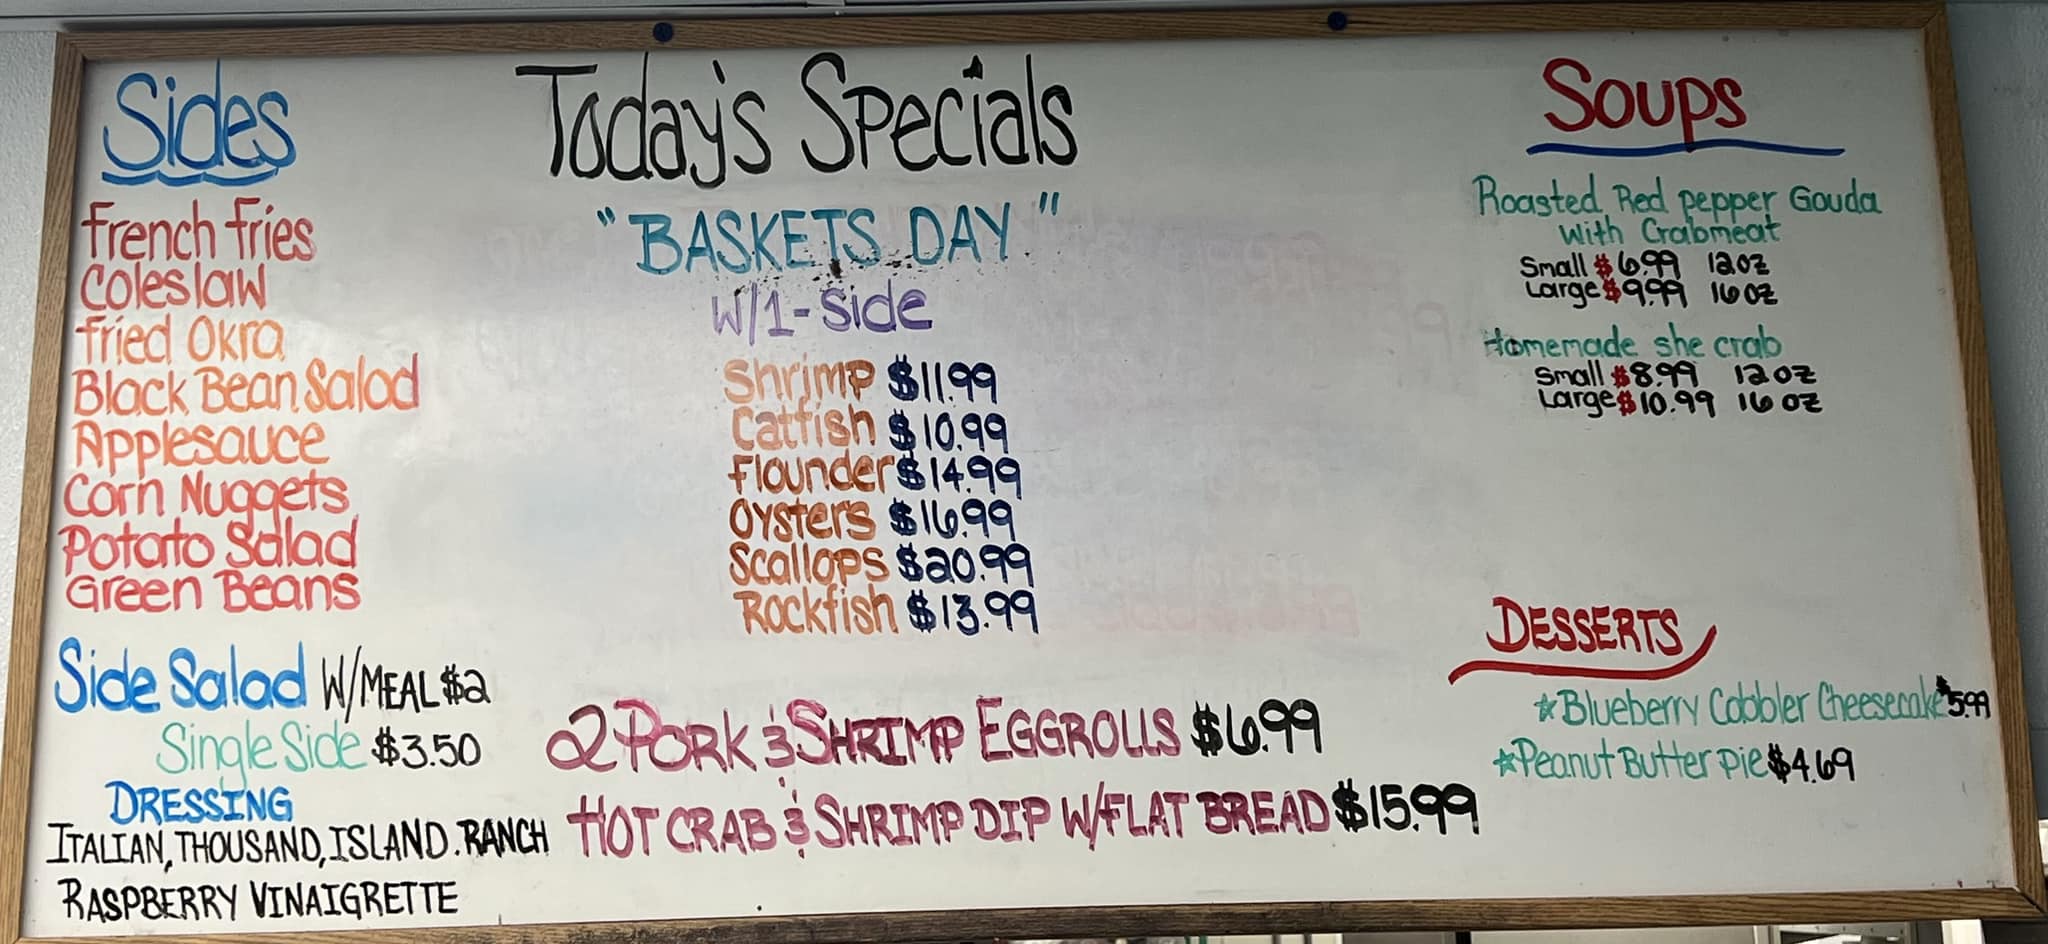 Sides
French Fries
Coleslaw
Fried Okra
Black Bean Salad
Applesauce
Corn Nuggets
Potato Salad
Green Beans
Side Salad W/MEAL $2
Single Side $3.50
DRESSING
ITALIAN, THOUSAND, ISLAND. RANCH
RASPBERRY VINAIGRETTE
Today's Specials
"BASKETS DAY"
W/1-Side
Shrimp $11.99
Catfish $10.99
Flounder $14.99
Oysters $16.99
Scallops $20.99
Rockfish $13.99
2 PORK & SHRIMP EGGROLLS $6.99
HOT CRAB & SHRIMP DIP W/FLAT BREAD $15.99
Soups
Roasted Red pepper Gouda
with Crabmeat
Small $6.99 12oz
Large $9.99 16oz
Homemade she crab
Small $8.99 12oz
Large $10.99 16oz
DESSERTS
☆Blueberry Cobbler Cheesecake $5.99
☆Peanut Butter Pie $4.69